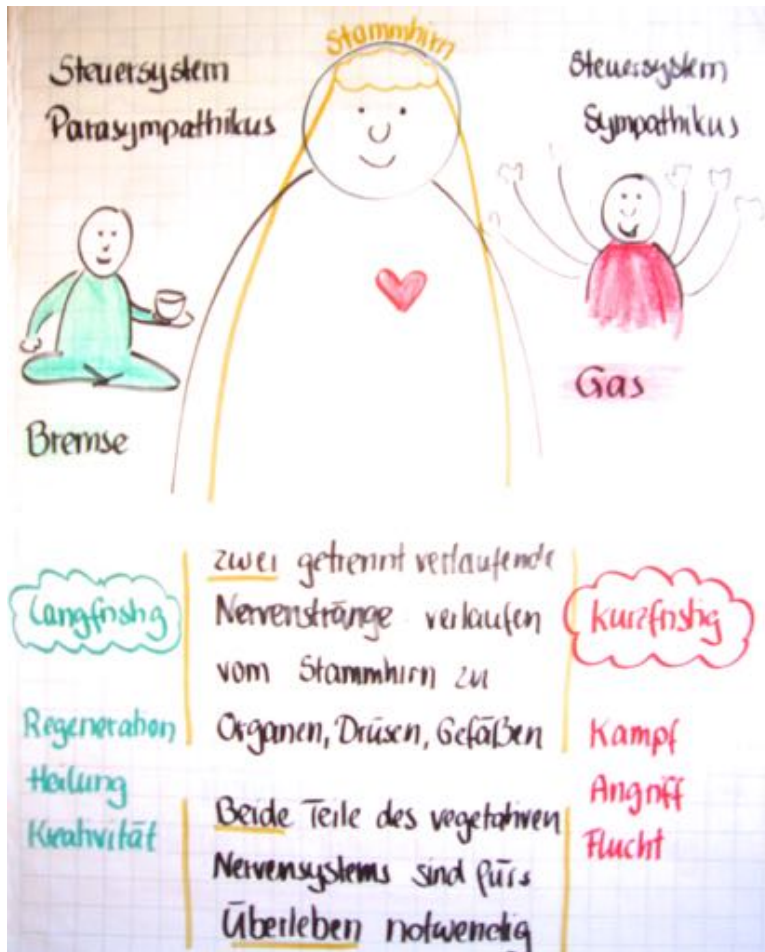 Stammhirn
Steuersystem
Parasympathikus
Steuersystem
Sympathikus
Bremse
Gas
langfristig
Regeneration
Heilung
Kreativität
zwei getrennt verlaufende
Nervenstränge verlaufen
vom Stammhirn zu
Organen, Drüsen, Gefäßen
Beide Teile des vegetativen
Nervensystems sind fürs
Überleben notwendig
kurzfristig
Kampf
Angriff
Flucht